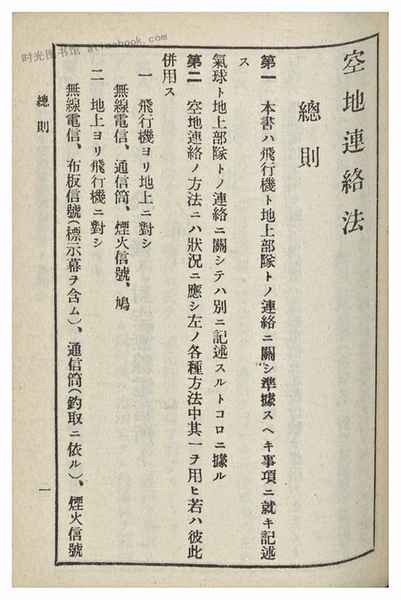 空地連絡法
總則
第一 本書ハ飛行機ト地上部隊トノ連絡ニ關シ準據スヘキ事項ニ就キ記述
ス
氣球ト地上部隊トノ連絡ニ關シテハ別ニ記述スルトコロニ據ル
第二 空地連絡ノ方法ニハ狀況ニ應シ左ノ各種方法中其一ヲ用ヒ若ハ彼此
併用ス
一 飛行機ヨリ地上ニ對シ
無線電信、通信筒、煙火信號、鳩
二 地上ヨリ飛行機ニ對シ
無線電信、布板信號(標示幕ヲ含ム)、通信筒(釣取ニ依ル)、煙火信號
總則
一
时光图书馆